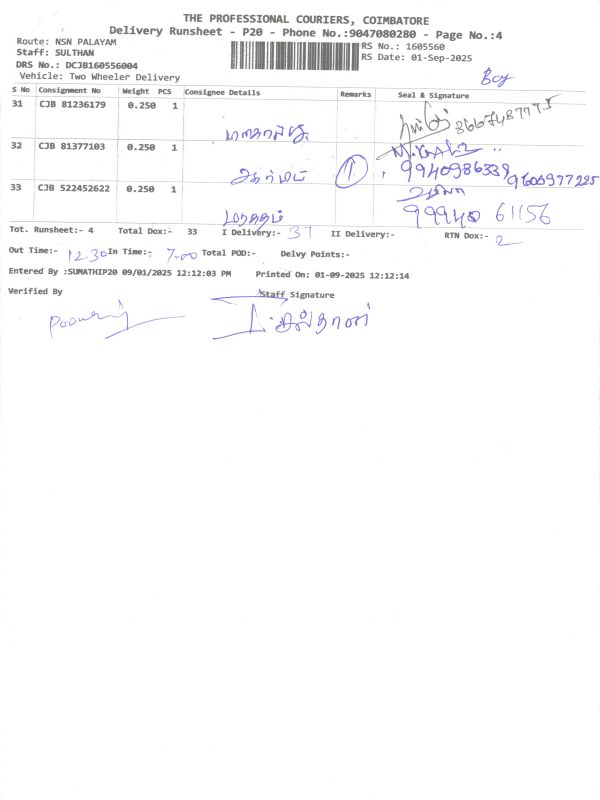 THE PROFESSIONAL COURIERS, COIMBATORE
Delivery Runsheet - P20 - Phone No.:9047080280 - Page No.:4
Route: NSN PALAYAM
RS No.: 1605560
Staff: SULTHAN
RS Date: 01-Sep-2025
DRS No.: DCJB160556004
Vehicle: Two Wheeler Delivery
Boy
S No Consignment No Weight PCS Consignee Details Remarks Seal & Signature
31 CJB 81236179 0.250 1
32 CJB 81377103 0.250 1
1 9940986339
33 CJB 522452622 0.250 1
99940 61156
Tot. Runsheet:- 4 Total Dox:- 33 I Delivery:- 31 II Delivery:- RTN Dox:- 2
Out Time:- 12.30 In Time:- 7.00 Total POD:- Delvy Points:-
Entered By :SUMATHIP20 09/01/2025 12:12:03 PM Printed On: 01-09-2025 12:12:14
Verified By Staff Signature